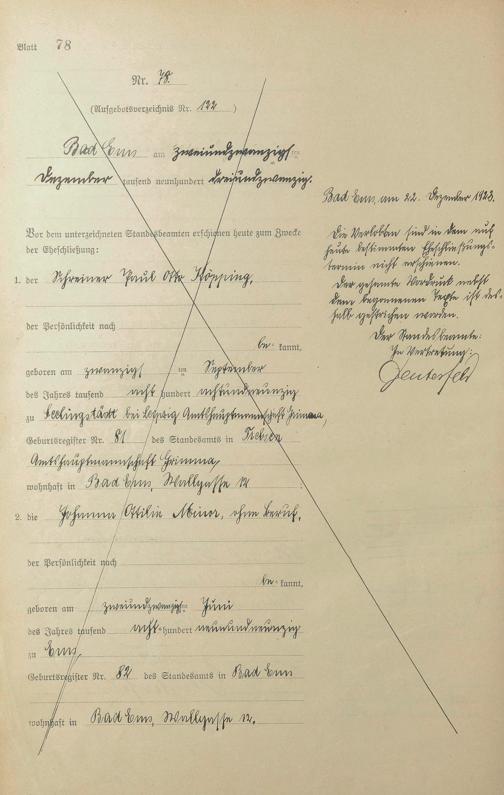 Blatt 78
Nr. 78.
(Aufgebotsverzeichnis Nr. 122)
Bad Ems am zweiundzwanzigsten
Dezember tausend neunhundert dreiundzwanzig.
Vor dem unterzeichneten Standesbeamten erschienen heute zum Zwecke
der Eheschließung:
1. der Schreiner Paul Otto Köpping,
der Persönlichkeit nach
be-kannt,
geboren am zwanzigsten September
des Jahres tausend acht hundert achtundneunzig
zu Seelingstädt bei Leipzig Amtshauptmannschaft Grimma,
Geburtsregister Nr. 81 des Standesamts in
Amtshauptmannschaft Grimma,
wohnhaft in Bad Ems, Wallgasse 12
2. die Johanna Ottilie Minor, ohne Beruf,
der Persönlichkeit nach
be-kannt,
geboren am zweiundzwanzigsten Juni
des Jahres tausend acht hundert neunundneunzig
zu Ems
Geburtsregister Nr. 82 des Standesamts in Bad Ems
wohnhaft in Bad Ems, Wallgasse 12.
Bad Ems, am 22. Dezember 1923.
Die Verlobten sind in dem auf
heute bestimmten Eheschließungs-
termin nicht erschienen.
Der gesamte Vordruck nebst
dem begonnenen Texte ist des-
halb gestrichen worden.
Der Standesbeamte:
In Vertretung: